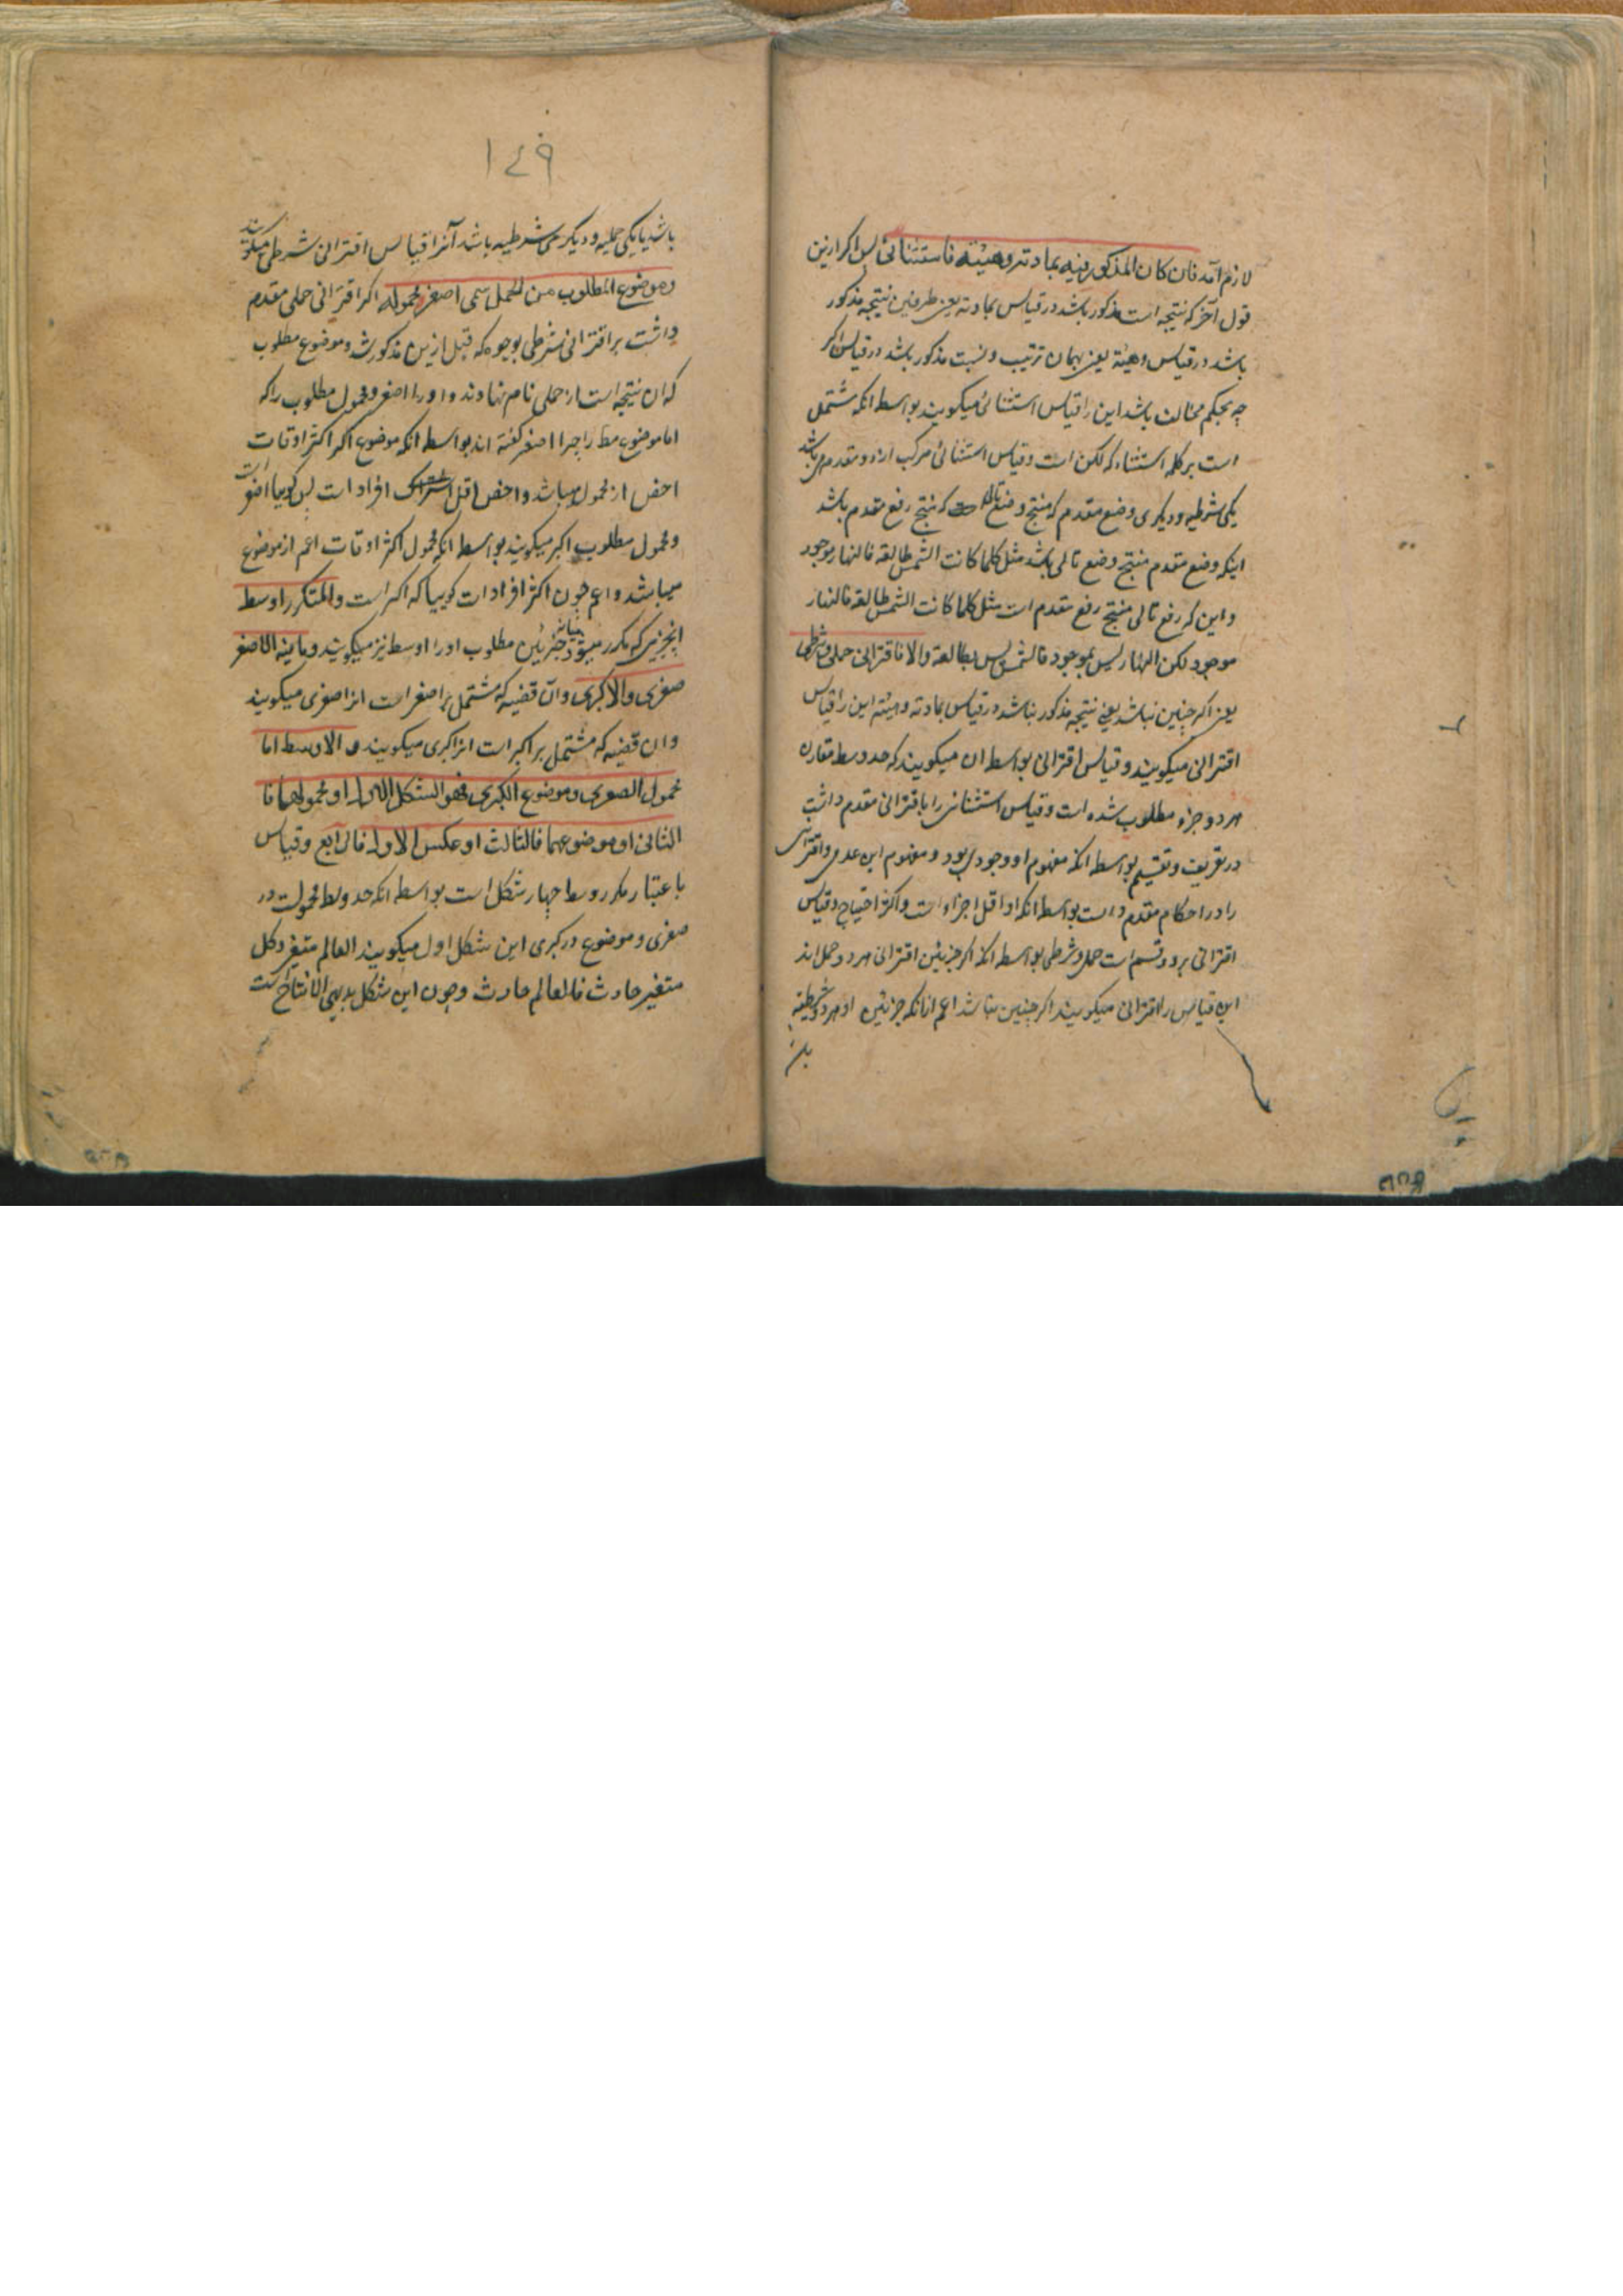 لازم آمد فان كان المذكور فيه بمادته وهيئته فاستثنائى پس اكر ازين
قول آخر كه نتيجه است مذكور باشد در قياس بمادته يعنى طرفين نتيجه مذكور
باشد در قياس وهيئة يعنى بهمان ترتيب ونسبت مذكور باشد در قياس اكر
چه بحكم مخالف باشد اين را قياس استثنائى ميكويند بواسطه انكه مشتمل
است بر كلمه استثناء كه لكن است وقياس استثنائى مركب از دو مقدمه مى باشد
يكى شرطيه وديكرى وضع مقدم كه منتج وضع تالى است كه منتج رفع مقدم باشد
اينكه وضع مقدم منتج وضع تالى باشد مثل كلما كانت الشمس طالعة فالنهار موجود
واين كه رفع تالى منتج رفع مقدم است مثل كلما كانت الشمس طالعة فالنهار
موجود لكن النهار ليس بموجود فالشمس ليس بطالعة والا فاقترانى حملى وشرطى
يعنى اكر چنين نباشد يعنى نتيجه مذكور نباشد در قياس بمادته وهيئته اين را قياس
اقترانى ميكويند وقياس اقترانى بواسطه ان ميكويند كه حد وسط مقارن
هر دو جزء مطلوب شده است وقياس استثنائى را با قترانى مقدم داشت
در تعريف وتقسيم بواسطه انكه مفهوم او وجودى بود ومفهوم اين عدمى واقترانى
را در احكام مقدم داشت بواسطه انكه او اقل اجزاء است واكثر احتياج وقياس
اقترانى بر دو قسم است حملى وشرطى بواسطه انكه اكر جزئين اقترانى هر دو حمل اند
اين قياس را اقترانى ميكويند اكر چنين نباشد اعم از انكه جزئين او هر دو شرطيه
١٤٩
باشد يا يكى حمليه وديكرى شرطيه باشد آنرا قياس اقترانى شرطى ميكويند
وموضوع المطلوب من الحملى يسمى اصغر ومحموله اكبر اقترانى حملى مقدم
داشت بر اقترانى شرطى بوجوه كه قبل ازين مذكور شد وموضوع مطلوب
كه ان نتيجه است از حملى نام نهادند و او را اصغر ومحمول مطلوب را كه
اما موضوع مط را چرا اصغر كفته اند بواسطه انكه موضوع اكر اكثر اوقات
اخص از محمول ميباشد واخص اقل افراد است پس كوييا اصغر است
ومحمول مطلوب اكبر ميكويند بواسطه انكه محمول اكثر اوقات اعم از موضوع
ميباشد واعم چون اكثر افراد است كوييا كه اكبر است والمتكرر اوسط
انچيزى كه مكرر ميشود جزئين مطلوب او را اوسط نيز ميكويند وما فيه الاصغر
صغرى والاكبر كبرى وآن قضيه كه مشتمل بر اصغر است انرا صغرى ميكويند
وان قضيه كه مشتمل بر اكبر است انرا كبرى ميكويند والاوسط اما
محمول الصغرى وموضوع الكبرى فهو الشكل الاول او محمولهما فا
الثانى او موضوعهما فالثالث او عكس الاول فالرابع وقياس
باعتبار مكرر وسط چهار شكل است بواسطه انكه حد وسط محمولست در
صغرى وموضوع در كبرى اين شكل اول ميكويند العالم متغير وكل
متغير حادث فالعالم حادث وچون اين شكل بديهى الانتاج است